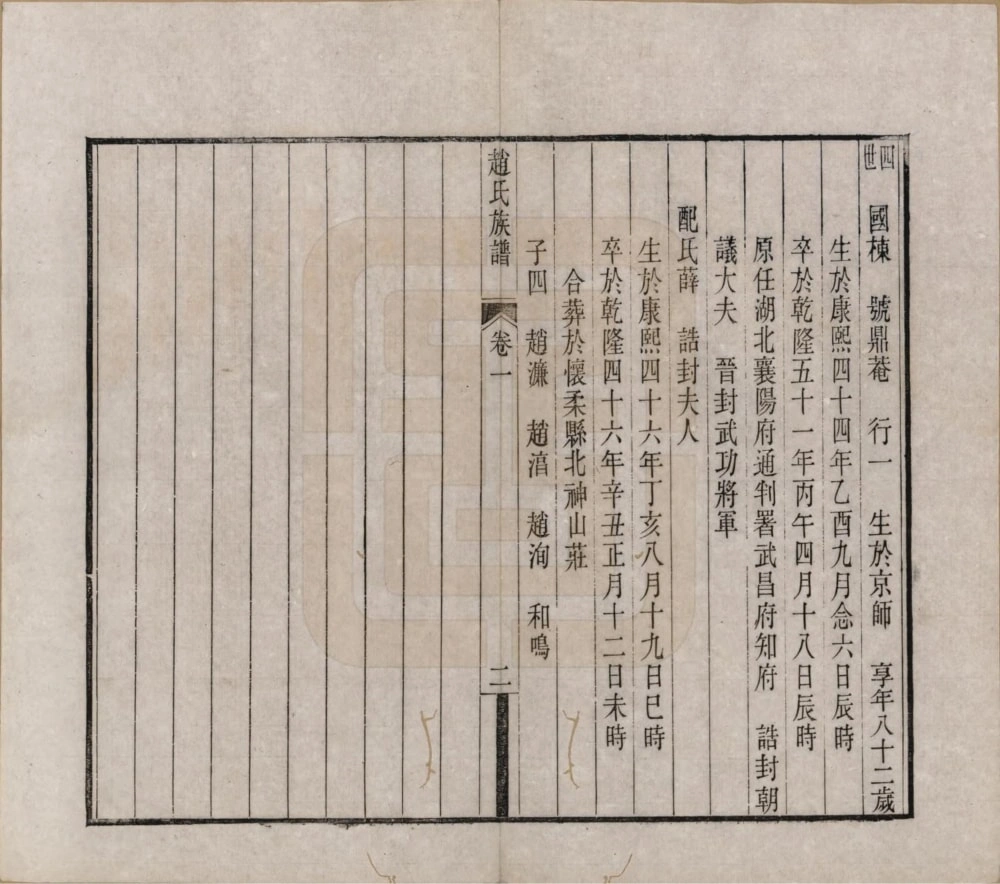 四世
國棟　號鼎菴　行一　生於京師　享年八十二歲
生於康熙四十四年乙酉九月念六日辰時
卒於乾隆五十一年丙午四月十八日辰時
原任湖北襄陽府通判署武昌府知府　誥封朝
議大夫　晉封武功將軍
配氏薛　誥封夫人
生於康熙四十六年丁亥八月十九日巳時
卒於乾隆四十六年辛丑正月十二日未時
合葬於懷柔縣北神山莊
子四　趙濂　趙涫　趙洵　和鳴
趙氏族譜　卷一　二